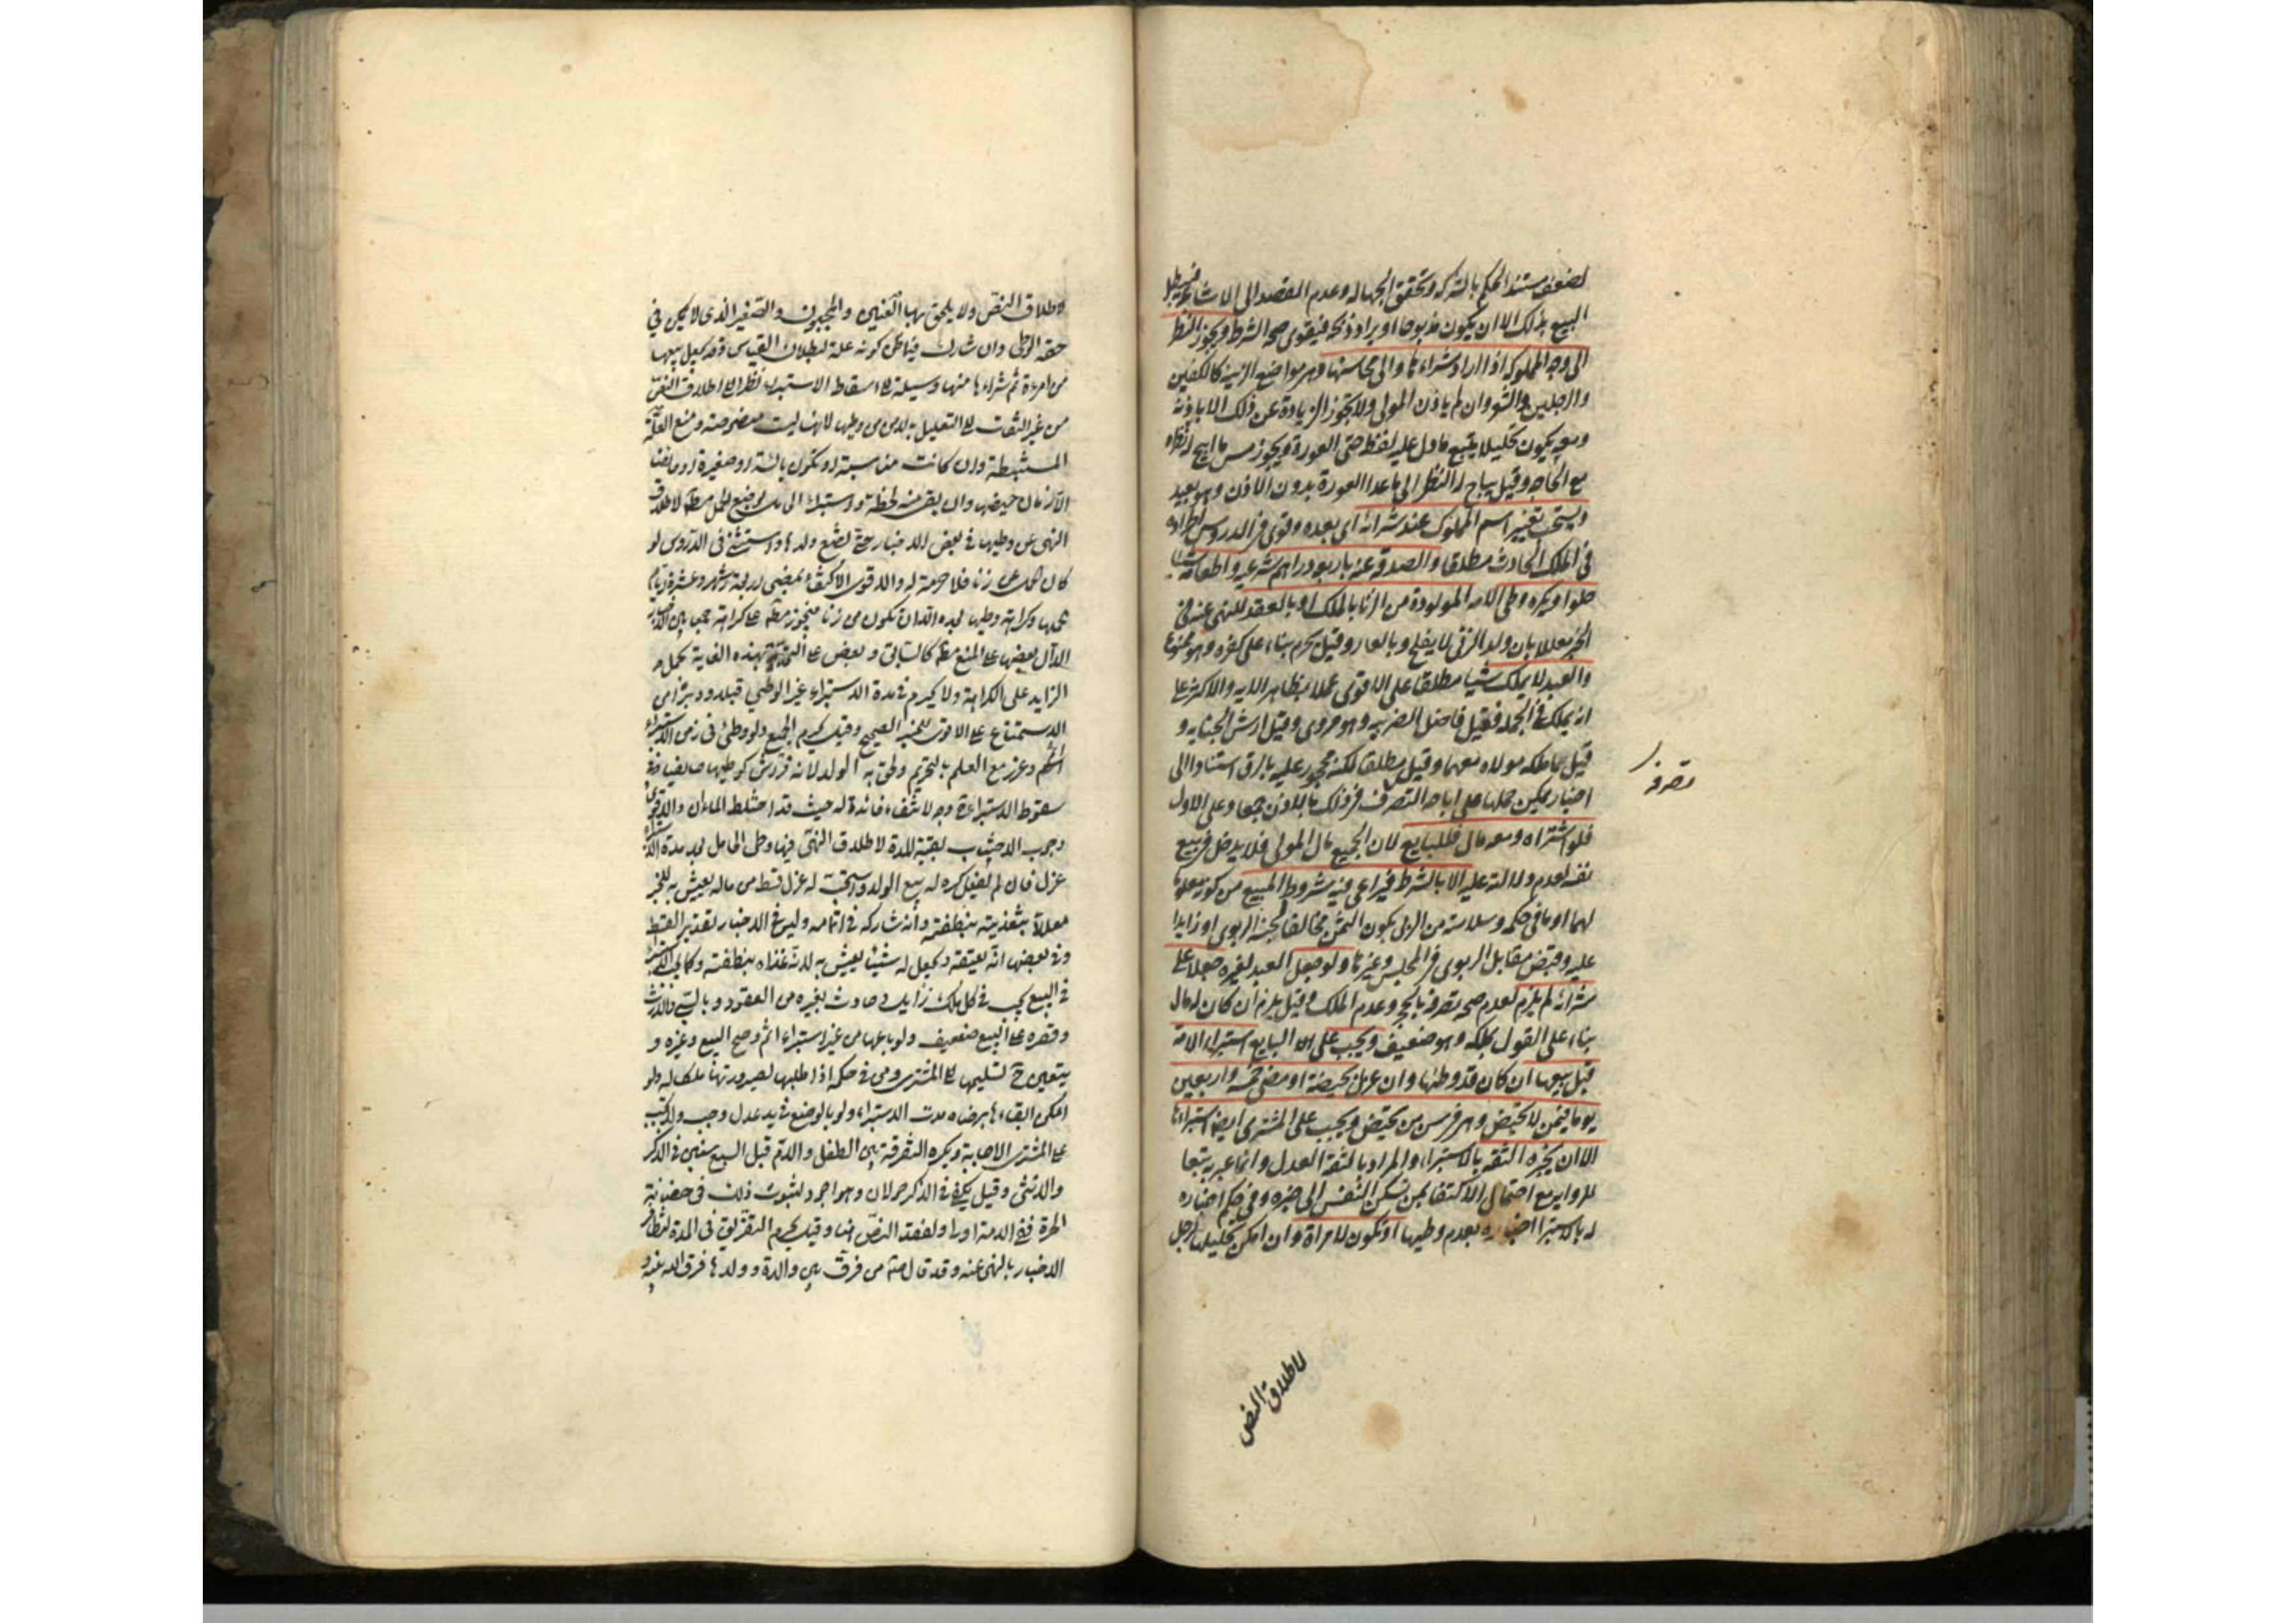 لضعف مستند الحكم بالشركة وتحقق الجهالة وعدم القصد الى الاشاعة فيبطل
البيع بذلك الا ان يكون مذبوحا او يراد ذبحه فيقوى صحة الشرط ويجوز النظر
الى وجه المملوكة اذا اراد شراءها والى محاسنها وهي مواضع الزينة كالكفين
والرجلين والشعر وان لم ياذن المولى ولا يجوز الزيادة عن ذلك الا باذنه
ومعه يكون تحليلا يتبع ما دل عليه لفظه حتى العورة ويجوز مس ما ابيح له نظره
مع الحاجة وقيل يباح له النظر الى ما عدا العورة بدون الاذن وهو بعيد
ويستحب تغيير اسم المملوك عند شرائه اى بعده وقوى في الدروس اطراده
في الملك الحادث مطلقا والصدقة عنه باربعة دراهم شرعية واطعامه شيئا
حلوا ويكره وطى الامة المولودة من الزنا بالملك او بالعقد للنهى عنه في
الخبر معللا بان ولد الزنى لا يفلح وبالعار وقيل يحرم بناء على كفره وهو ممنوع
والعبد لا يملك شيا مطلقا على الاقوى عملا بظاهر الاية والاكثر على
انه يملك في الجملة فقيل فاضل الضريبة وهو مروى وقيل ارش الجناية و
قيل ما ملكه مولاه معهما وقيل مطلقا لكنه محجور عليه بالرق استنادا الى
اخبار يمكن حملها على اباحة التصرف في ذلك بالاذن جمعا وعلى الاول
فلو اشتراه ومعه مال فللبايع لان الجميع مال المولى فلا يدخل في بيع
نفسه لعدم دلالته عليه الا بالشرط فيراعى فيه شروط المبيع من كونه معلوما
لهما او ما في حكمه وسلامته من الربا بكون الثمن مخالفا لجنسه الربوى او زايدا
عليه وقبض مقابل الربوى في المجلس وغيرها ولو جعل العبد لغيره جعلا على
شرائه لم يلزم لعدم صحة تصرفه بالحجر وعدم الملك وقيل يلزم ان كان له مال
بناء على القول بملكه وهو ضعيف ويجب على البايع استبراء الامة
قبل بيعها ان كان قد وطئها وان عزل بحيضة او مضى خمسة واربعين
يوما فيمن لا تحيض وهي في سن من تحيض ويجب على المشترى ايضا استبراءها
الا ان يخبره الثقة بالاستبراء والمراد بالثقة العدل وانما عبر به تبعا
للرواية مع احتمال الاكتفا بمن تسكن النفس الى خبره وفي حكم اخباره
له بالاستبرا اخباره بعدم وطيها او تكون لامراة وان امكن تحليلها لرجل
تصرفه
لاطلاق النص
لاطلاق النص ولا يلحق بها العنين والمجبوب والصغير الذى لا يمكن في
حقه الوطى وان شارك فيما ظن كونه علة لبطلان القياس وقد يجعل بيعها
من امرءة ثم شراءها منها وسيلة الى اسقاط الاستبراء نظرا الى اطلاق النص
من غير التفات الى التعليل بالامن من وطيها لانها ليست منصوصة ومنع العلة
المستنبطة وان كانت مناسبة او تكون يائسة او صغيرة او حائضا
الا زمان حيضها وان بقى منه لحظة واستبراء الحامل بوضع الحمل مطلقا لاطلاق
النهى عن وطيها في بعض الاخبار حتى تضع ولدها واستثنى في الدروس لو
كان الحمل عن زنا فلا حرمة له والاقوى الاكتفاء بمضى اربعة اشهر وعشرة ايام
لحملها وكراهة وطيها بعدها الا ان تكون من زنا فيجوز مطلقا على كراهة جمعا بين الاخبار
الدال بعضها على المنع مطلقا كالسابق وبعض على التحديد بهذه الغاية بحمل
الزايد على الكراهة ولا يحرم في مدة الاستبراء غير الوطى قبلا ودبرا من
الاستمتاع على الاقوى للخبر الصحيح وقيل يحرم الجميع ولو وطئ في زمن الاستبراء
اثم وعزر مع العلم بالتحريم ولحق به الولد لانه فراش كوطيها حايضا وفي
سقوط الاستبراء وجه لانتفاء فائدته حيث قد اختلط الماءان والاقوى
وجوب الاجتناب بقية المدة لاطلاق النهى فيها وطى الحامل بعد مدة الاستبراء
عزل فان لم يفعل كره له بيع الولد واستحب له عزل قسط من ماله يعيش به للخبر
معللا بتغذيته بنطفته وانه شاركه في اتمامه وليس في الاخبار تقدير القسط
وفي بعضها انه يعتقه ويجعل له شيئا يعيش به لانه غذاه بنطفته وكما يجب الاستبراء
في البيع يجب في كل ملك زايل وحادث بغيره من العقود وبالسبى والارث
وقصره على البيع ضعيف ولو باعها من غير استبراء اثم وصح البيع وغيره و
يتعين ح تسليمها الى المشترى ومن في حكمه اذا طلبها لصيرورتها ملكا له ولو
امكن ابقاءها برضاه مدة الاستبراء ولو بالوضع في يد عدل وجب ولا يجب
على المشترى الاجابة ويكره التفرقة بين الطفل والام قبل السبع سنين في الذكر
والانثى وقيل يكفى في الذكر حولان وهو اجود لثبوت ذلك في حضانة
الحرة ففي الامة اولى او لفقد النص هنا وقيل يحرم التفريق في المدة لتظافر
الاخبار بالنهى عنه وقد قال ص من فرق بين والدة وولدها فرق الله بينه و